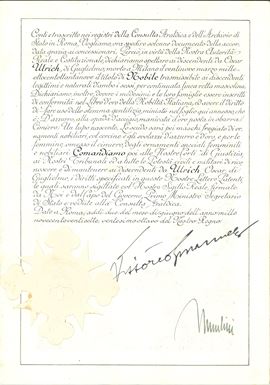 Conti e trascritto nei registri della Consulta Araldica e dell'Archivio di
Stato in Roma, Vogliamo, ora spedire solenne documento della accor-
data grazia ai concessionari. Perciò, in virtù della Nostra Autorità
Reale e Costituzionale, dichiariamo spettare ai discendenti da Oscar
Ulrich, di Guglielmo, morto a Milano il
il titolo di Nobile trasmissibile ai discendenti
legittimi e naturali d'ambo i sessi per continuata linea retta mascolina.
Dichiariamo inoltre dovere i medesimi e le loro famiglie essere inscritti
di conformità nel Libro d'oro della Nobiltà Italiana, ed avere il diritto
di far uso dello stemma gentilizio miniato nel foglio qui annesso, che
è: D'azzurro, alla
Cimiero: Un lupo nascente. Lo scudo sarà
e per le
femmine, omesso il cimiero, degli ornamenti speciali femminili
e nobiliari. Comandiamo poi alle Nostre Corti di Giustizia
ai Nostri Tribunali ed a tutte le Potestà civili e militari di rico-
noscere e di mantenere ai discendenti da Ulrich Oscar, di
Guglielmo, i diritti specificati in queste Nostre Lettere Patenti,
le quali saranno sigillate col Nostro Sigillo Reale, firmate
da Noi e dal Capo del Governo Primo Ministro Segretario
di Stato e vedute alla Consulta Araldica.
Date a Roma, addì due del mese di giugno dell'anno mille
novecentoventinove, ventesimo nono del Nostro Regno.
Vittorio Emanuele
Mussolini